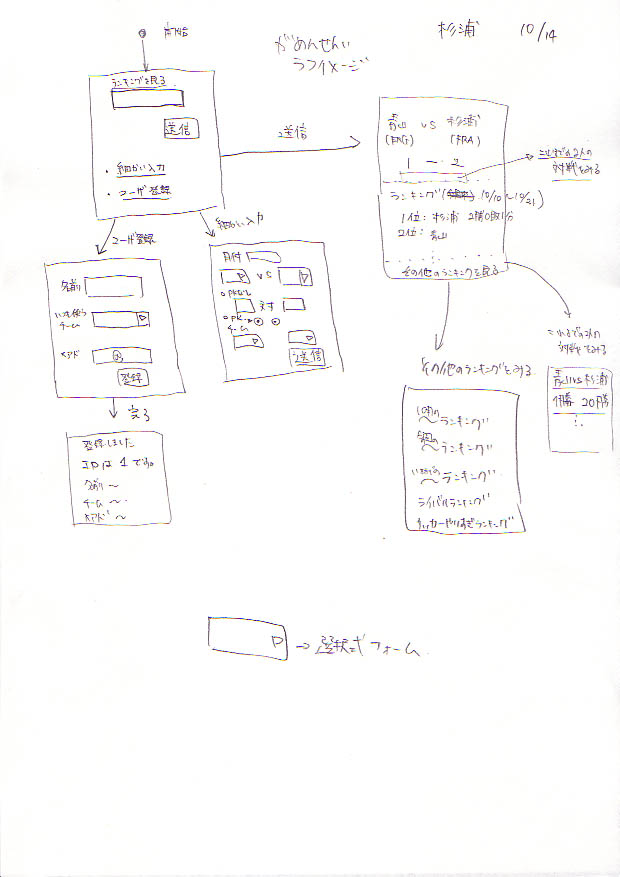 開始
がめんせんい
ラフイメージ
杉浦 10/14
ランキングを見る
送信
・細かい入力
・ユーザ登録
送信
青山 VS 杉浦
(ENG) (FRA)
1 - 2
ランキング( 10/10~10/21)
1位: 杉浦 2勝0敗1分
2位: 青山
その他のランキングを見る
これまでの2人の
対戦をみる
ユーザ登録
名前
いつも使う
チーム
メアド @
登録
完了
登録しました
IDは1です。
名前~
チーム~
メアド~
細かい入力
日付
VS
対
チーム
送信
その他のランキングをみる
~ランキング
今週の
~ランキング
いままでの
~ランキング
ライバルランキング
ランキング
これまでの2人の
対戦をみる
青山vs杉浦
20勝
→選択式フォーム